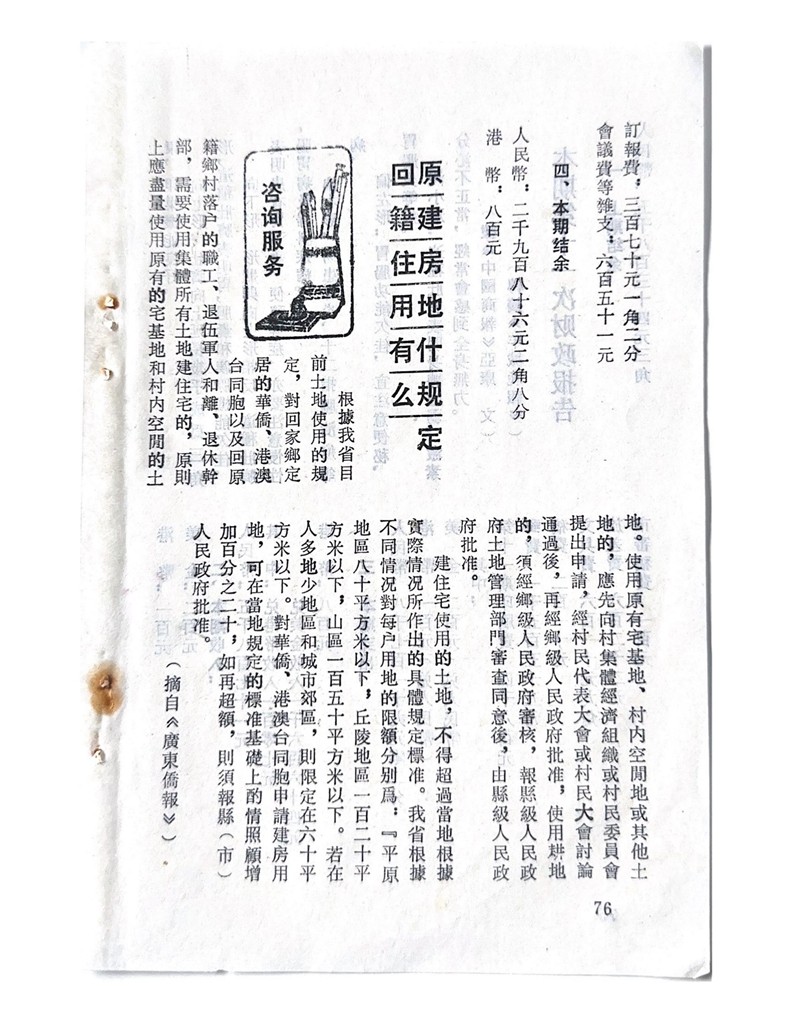 訂報費：三百七十元一角二分
會議費等雜支：六百五十一元
四、本期结余
人民幣：二千九百八十六元二角八分
港　幣：八百元
原籍住用有什么规定
回建房地
咨询服务
根據我省目
前土地使用的規
定，對回家鄉定
居的華僑、港澳
台同胞以及回原
籍鄉村落户的職工、退伍軍人和離、退休幹
部，需要使用集體所有土地建住宅的，原則
上應盡量使用原有的宅基地和村内空閒的土
地。使用原有宅基地、村内空閒地或其他土
地的，應先向村集體經濟組織或村民委員會
提出申請，經村民代表大會或村民大會討論
通過後，再經鄉級人民政府批准，使用耕地
的，須經鄉級人民政府審核，報縣級人民政
府土地管理部門審查同意後，由縣級人民政
府批准。
建住宅使用的土地，不得超過當地根據
實際情况所作出的具體規定標准。我省根據
不同情况對每户用地的限額分别爲：『平原
地區八十平方米以下，丘陵地區一百二十平
方米以下，山區一百五十平方米以下。若在
人多地少地區和城市郊區，則限定在六十平
方米以下。對華僑、港澳台同胞申請建房用
地，可在當地規定的標准基礎上酌情照顧增
加百分之二十，如再超額，則須報縣（市）
人民政府批准。
（摘自《廣東僑報》）
76